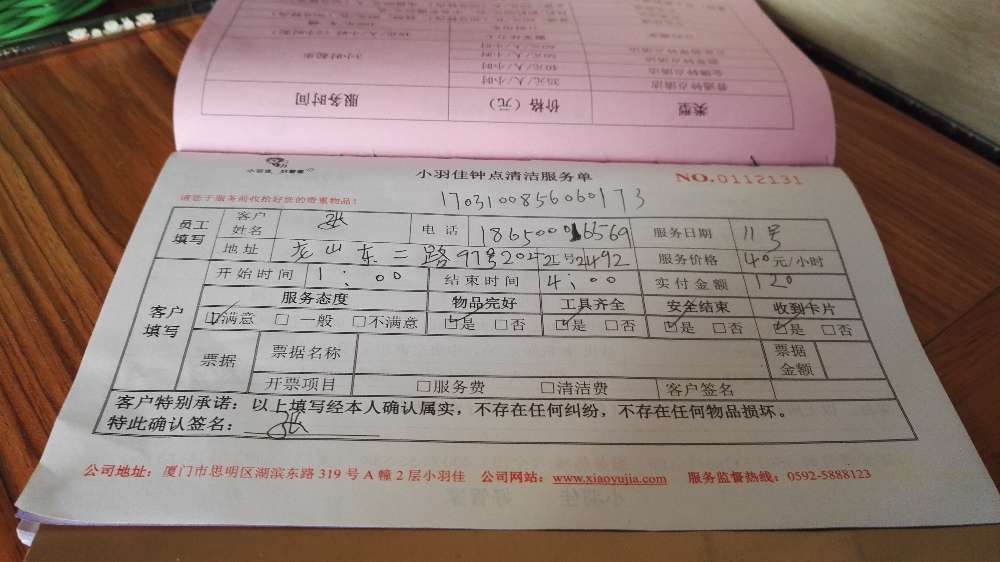 类型 价格（元） 服务时间
普通钟点清洁 35元/人/小时
金牌钟点清洁 40元/人/小时 3小时起步
50元/人/小时
60元/人/小时
小羽佳 好管家
小羽佳钟点清洁服务单
NO.0112131
请您于服务前收拾好您的贵重物品！
1703100856060173
员工填写 客户姓名 张 电话 服务日期 11号
地址 龙山东二路97号 服务价格 40元/小时
客户填写 开始时间 1:00 结束时间 4:00 实付金额 120
服务态度 物品完好 工具齐全 安全结束 收到卡片
☑满意 □一般 □不满意 ☑是 □否 ☑是 □否 ☑是 □否 ☑是 □否
票据 票据名称 票据金额
开票项目 □服务费 □清洁费 客户签名
客户特别承诺：以上填写经本人确认属实，不存在任何纠纷，不存在任何物品损坏。
特此确认签名： 张
公司地址：厦门市思明区湖滨东路319号A幢2层小羽佳 公司网站：www.xiaoyujia.com 服务监督热线：0592-5888123